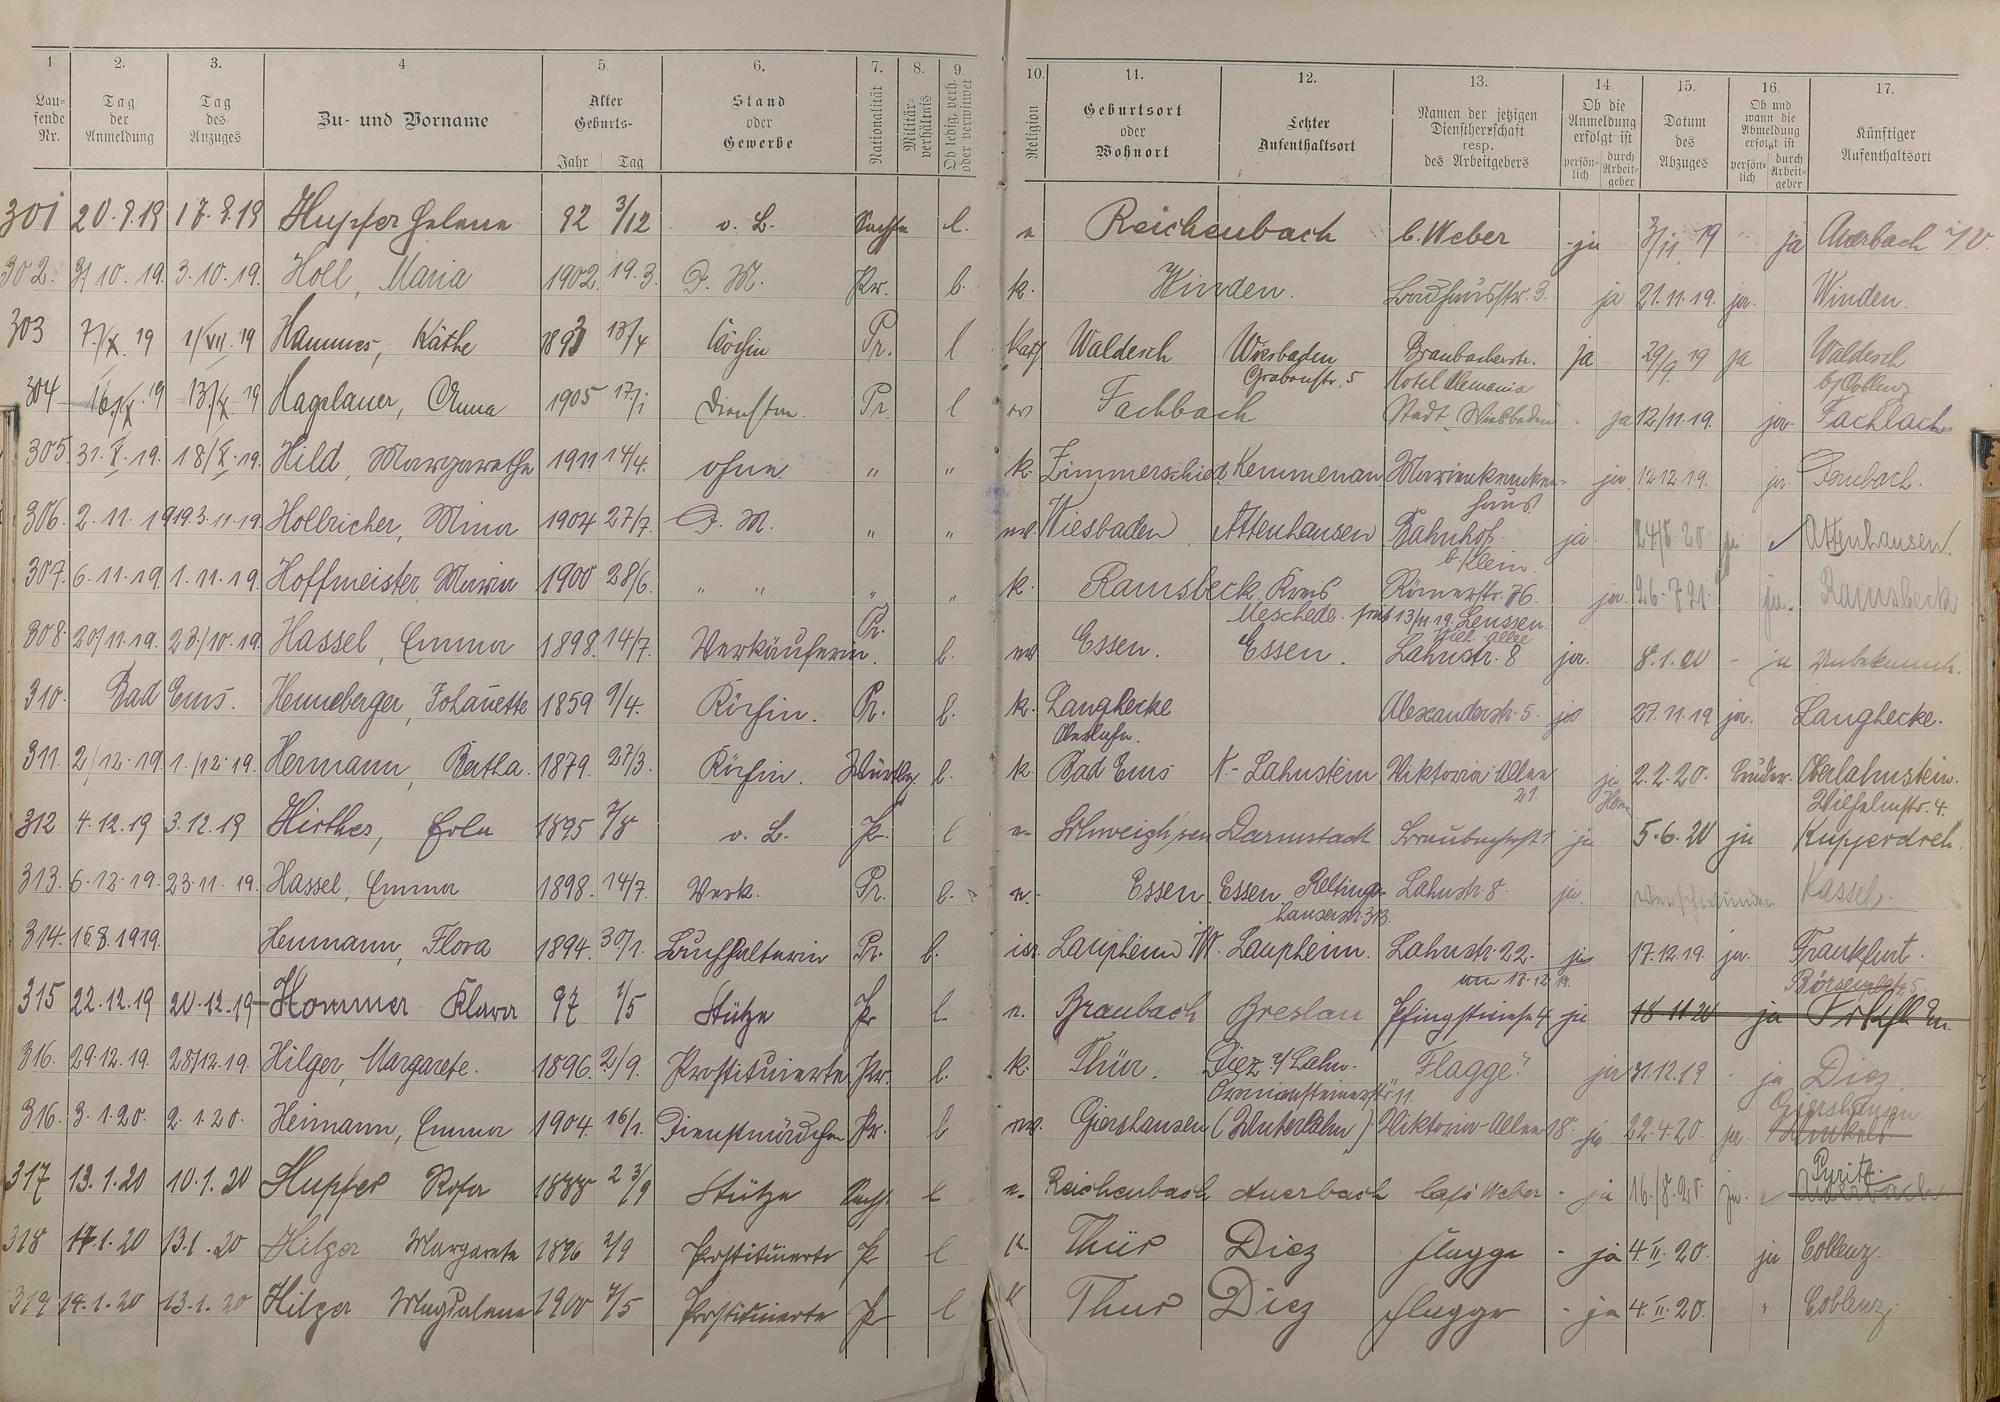 1 2. 3. 4 5. 6. 7. 8. 9. 10. 11. 12. 13. 14. 15. 16. 17.
Lau-
fende
Nr.
Tag
der
Anmeldung
Tag
des
Anzuges
Zu- und Vorname
Alter
Geburts-
Jahr Tag
Stand
oder
Gewerbe
Nationalität
Militär-
verhältnis
Ob ledig, verh.
oder verwitwet
Religion
Geburtsort
oder
Wohnort
Letzter
Aufenthaltsort
Namen der jetzigen
Dienstherrschaft
resp.
des Arbeitgebers
Ob die
Anmeldung
erfolgt ist
persön-
lich
durch
Arbeit-
geber
Datum
des
Abzuges
Ob und
wann die
Abmeldung
erfolgt ist
persön-
lich
durch
Arbeit-
geber
Künftiger
Aufenthaltsort
301 20.9.19 17.9.19 Hupfer Helene 92 3/12 o. B. Sachse l. Reichenbach b. Weber ja 3/11 19 ja Auerbach i/V.
302. 3/10.19. 3.10.19. Holl, Maria 1902. 19.3. D. M. Pr. l. k. Winden. 3. ja 21.11.19. ja. Winden.
303 7./X. 19 1/VII. 19 Hammes, Käthe 1893 13/4 Köchin Pr. l kath Waldesch Wiesbaden Braubacherstr. ja 29/9 19 ja Waldesch
Grabenstr. 5 Hotel Alemania b/Coblenz
304 16./X. 19 13./X. 19 Hagelauer, Anna 1905 17/1 Dienstm. Pr. l ev Fachbach Stadt Wiesbaden ja 12/11.19. ja. Fachbach
305. 31.X.19. 18/X.19. Hild, Margarethe 1911 14/4. ohne " " k. Zimmerschied Kemmenau Marienkranken- ja. 12.12.19. ja.
haus
306. 2.11.19 3.11.19. Hollricher, Mina 1904 27/7. D. M. " " ev. Wiesbaden Attenhausen Bahnhof ja. 24/8 20 ja Attenhausen.
b/Klein.
307. 6.11.19. 1.11.19. Hoffmeister, Maria 1900 28/6. " " " " k. Ramsbeck Kreis Römerstr. 76. ja. 26.7.21. ja. Ramsbeck
Meschede. 13/11 19 Leussen.
308. 20/11.19. 23/10.19. Hassel, Emma 1898. 14/7. Verkäuferin. Pr. l. ev Essen. Essen. Lahnstr. 8 ja. 8.1.20 - ja Unbekannt.
310. Bad Ems. Henneberger, Johanette 1859 9/4. Köchin. Pr. l. k. Langhecke Alexanderstr. 5. ja 27.11.19. ja. Langhecke.
Oberlahn.
311. 2/12.19 1./12.19. Hermann, Bertha. 1879. 27/3. Köchin. Württbg l. k. Bad Ems N.-Lahnstein Viktoria-Allee ja 2.2.20. Bruder. Oberlahnstein.
21. Wilhelmstr. 4.
312 4.12.19 3.12.19 Hirthes, Erla 1895 7/8 o. B. Pr. l Darmstadt ja 5.6.20 ja Kupferdreh.
313. 6.12.19. 23.11.19. Hassel, Emma 1898. 14/7. Verk. Pr. l. Essen Essen, Relling- Lahnstr. 8 ja. verschwunden Kassel.
hauserstr. 313.
314. 15.8.1919. Henmann, Flora 1894. 30/1. Buchhalterin Pr. l. isr. Laupheim W. Laupheim. Lahnstr. 22. ja 17.12.19. ja. Frankfurt.
Börsenplatz 5.
315 22.12.19 20.12.19 Hommer Klara 97 1/5 Stütze Pr l. e. Braubach Breslau Pfingstwiese 4 ja 18 11 20 ja
316. 29.12.19. 28/12.19. Hilger, Margarete. 1896. 2/9. Prostituierte Pr. l. k. Thür. Diez a/Lahn. Flagge? ja 31.12.19 ja Diez.
Oraniensteinerstr 11.
316. 3.1.20. 2.1.20. Heimann, Emma 1904. 16/1. Dienstmädchen Pr. l ev. Giershausen (Unterlahn) Viktoria-Allee 18. ja 22.4.20. ja. Giershausen
317 13.1.20 10.1.20 Hupfer Rosa 1888 23/9 Stütze Sachs. l e. Reichenbach Auerbach Café Weber - ja 16/8.20 ja. Pyritz.
Auerbach
318 14.1.20 13.1.20 Hilger Margarete 1896 2/9 Prostituierte Pr l K. Thür Diez Flagge - ja 4.II.20. ja Coblenz.
319 14.1.20 13.1.20 Hilger Magdalena 1900 7/5 Prostituierte Pr l K Thür Diez Flagge - ja 4.II.20. " Coblenz